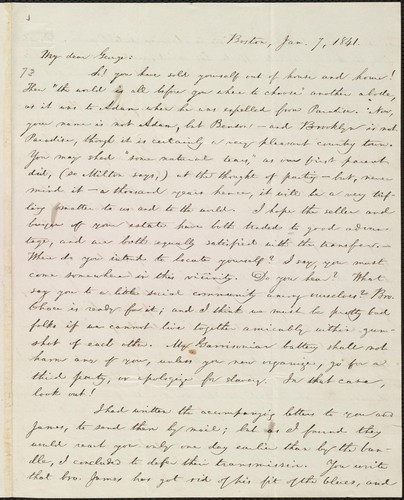 Boston, Jan. 7, 1841.
My dear George:
73 So! you have sold yourself out of house and home!
Then "the world is all before you where to choose" another abode,
as it was to Adam when he was expelled from Paradise. "Now,
your name is not Adam, but Benson" — and Brooklyn is not
Paradise, though it is certainly a very pleasant country town.
You may shed "some natural tears," as our first parents
did, (so Milton says,) at the thought of parting — but, never
mind it — a thousand years hence, it will be a very tri-
fling matter to us and to the world. I hope the seller and
buyer of your estate have both traded to good advan-
tage, and are both equally satisfied with the transfer.—
Where do you intend to locate yourself? I say, you must
come somewhere in this vicinity. Do you hear? What
say you to a little social community among ourselves? Bro.
Chace is ready for it; and I think we must be pretty bad
folks if we cannot live together amicably within gun-
shot of each other. My Garrisonian battery shall not
harm any of you, unless you new organize, go for a
third party, or apologize for slavery. In that case,
look out!
I had written the accompanying letters to you and
James, to send them by mail; but as I found they
would reach you only one day earlier than by the bun-
dle, I concluded to defer their transmission. You write
that bro. James has got rid of his fit of the blues, and